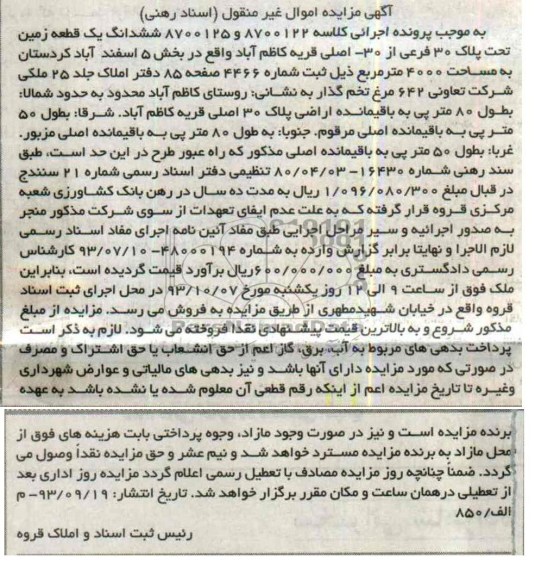 آگهی مزایده اموال غیر منقول (اسناد رهنی)
به موجب پرونده اجرائی کلاسه ۸۷۰۰۱۲۲ و ۸۷۰۰۱۲۵ ششدانگ یک قطعه زمین
تحت پلاک ۳۰ فرعی از ۳۰- اصلی قریه کاظم آباد واقع در بخش ۵ اسفند آباد کردستان
به مساحت ۴۰۰۰ مترمربع ذیل ثبت شماره ۴۴۶۶ صفحه ۸۵ دفتر املاک جلد ۲۵ ملکی
شرکت تعاونی ۶۴۲ مرغ تخم گذار به نشانی: روستای کاظم آباد محدود به حدود شمالا:
بطول ۸۰ متر پی به باقیمانده اراضی پلاک ۳۰ اصلی قریه کاظم آباد. شرقا: بطول ۵۰
متر پی به باقیمانده اصلی مرقوم. جنوبا: به طول ۸۰ متر پی به باقیمانده اصلی مزبور.
غربا: بطول ۵۰ متر پی به باقیمانده اصلی مذکور که راه عبور طرح در این حد است، طبق
سند رهنی شماره ۱۶۴۳۰- ۸۰/۰۴/۰۳ تنظیمی دفتر اسناد رسمی شماره ۲۱ سنندج
در قبال مبلغ ۱/۰۹۶/۰۸۰/۳۰۰ ریال به مدت ده سال در رهن بانک کشاورزی شعبه
مرکزی قروه قرار گرفته که به علت عدم ایفای تعهدات از سوی شرکت مذکور منجر
به صدور اجرائیه و سیر مراحل اجرایی طبق مفاد آئین نامه اجرای مفاد اسناد رسمی
لازم الاجرا و نهایتا برابر گزارش وارده به شماره ۴۸۰۰۰۱۹۴-۹۳/۰۷/۱۰ کارشناس
رسمی دادگستری به مبلغ ۶۰۰/۰۰۰/۰۰۰ریال برآورد قیمت گردیده است، بنابراین
ملک فوق از ساعت ۹ الی ۱۲ روز یکشنبه مورخ ۹۳/۱۰/۰۷ در محل اجرای ثبت اسناد
قروه واقع در خیابان شهیدمطهری از طریق مزایده به فروش می رسد. مزایده از مبلغ
مذکور شروع و به بالاترین قیمت پیشنهادی نقدا فروخته می شود. لازم به ذکر است
پرداخت بدهی های مربوط به آب، برق، گاز اعم از حق انشعاب یا حق اشتراک و مصرف
در صورتی که مورد مزایده دارای آنها باشد و نیز بدهی های مالیاتی و عوارض شهرداری
وغیره تا تاریخ مزایده اعم از اینکه رقم قطعی آن معلوم شده یا نشده باشد به عهده
برنده مزایده است و نیز در صورت وجود مازاد، وجوه پرداختی بابت هزینه های فوق از
محل مازاد به برنده مزایده مسترد خواهد شد و نیم عشر و حق مزایده نقداً وصول می
گردد. ضمناً چنانچه روز مزایده مصادف با تعطیل رسمی اعلام گردد مزایده روز اداری بعد
از تعطیلی درهمان ساعت و مکان مقرر برگزار خواهد شد. تاریخ انتشار: ۹۳/۰۹/۱۹- م
الف/۸۵۰
رئیس ثبت اسناد و املاک قروه